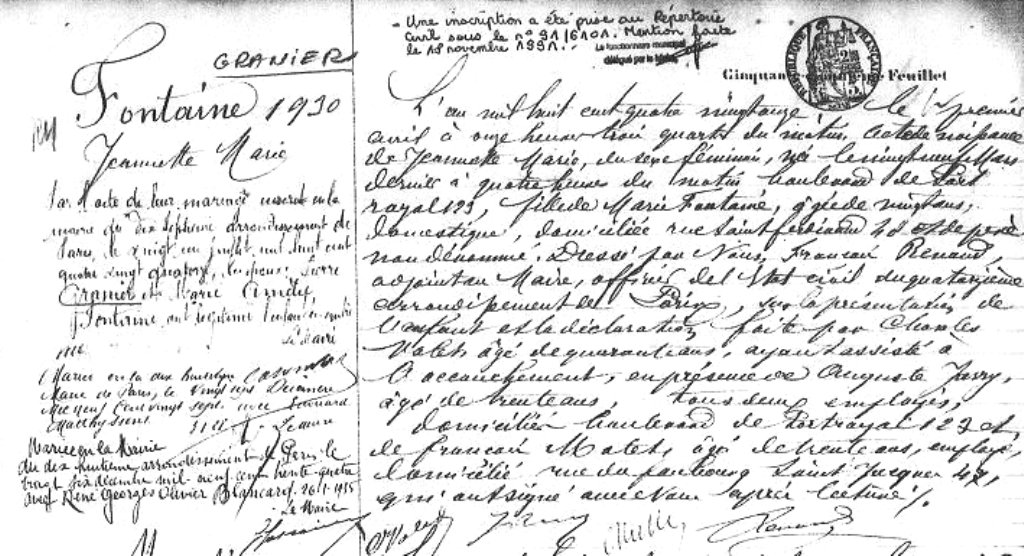 - Une inscription a été prise au Répertoire
Civil sous le n° 91/6101. Mention faite
le 18 novembre 1991.-
Le fonctionnaire municipal
délégué par le Maire
RÉPUBLIQUE FRANÇAISE
Feuillet
GRANIER
Fontaine 1930
Jeannette Marie
Par l'acte de leur mariage
mairie du dix septième arrondissement de
Paris, le vingt un juillet mil huit cent
quatre vingt quatorze, les époux Pierre
Granier et Marie
Fontaine ont légitimé l'enfant ci contre
Le Maire
Mariée en la dix huitième
Mairie de Paris, le vingt sept Décembre
Mil neuf cent vingt sept avec Bernard
Matthyssens
Mariée en la Mairie
du dix huitième arrondissement de Paris le
vingt six décembre mil neuf cent trente quatre
avec René Georges Olivier Blancard. 26-1-1935
Le Maire
L'an mil huit cent quatre vingt onze le premier
avril à onze heures trois quarts du matin Acte de naissance
de Jeannette Marie, du sexe féminin, née le vingt neuf Mars
dernier à quatre heures du matin boulevard de Port
royal 123, fille de Marie Fontaine, âgée de vingt ans,
domestique, domiciliée rue Saint ferdinand 48 et de père
non dénommé. Dressé par Nous, Francois Renaud,
adjoint au Maire, officier de l'Etat civil du quatorzième
arrondissement de Paris, sur la présentation de
l'enfant et la déclaration faite par Charles
Valets âgé de quarante ans, ayant assisté à
l'accouchement, en présence de Auguste
âgé de trente ans, tous deux employés,
domiciliés boulevard de Port royal 123 et
de francois âgé de trente ans, employé,
domicilié rue du faubourg Saint Jacques 47,
qui ont signé avec Nous après lecture.